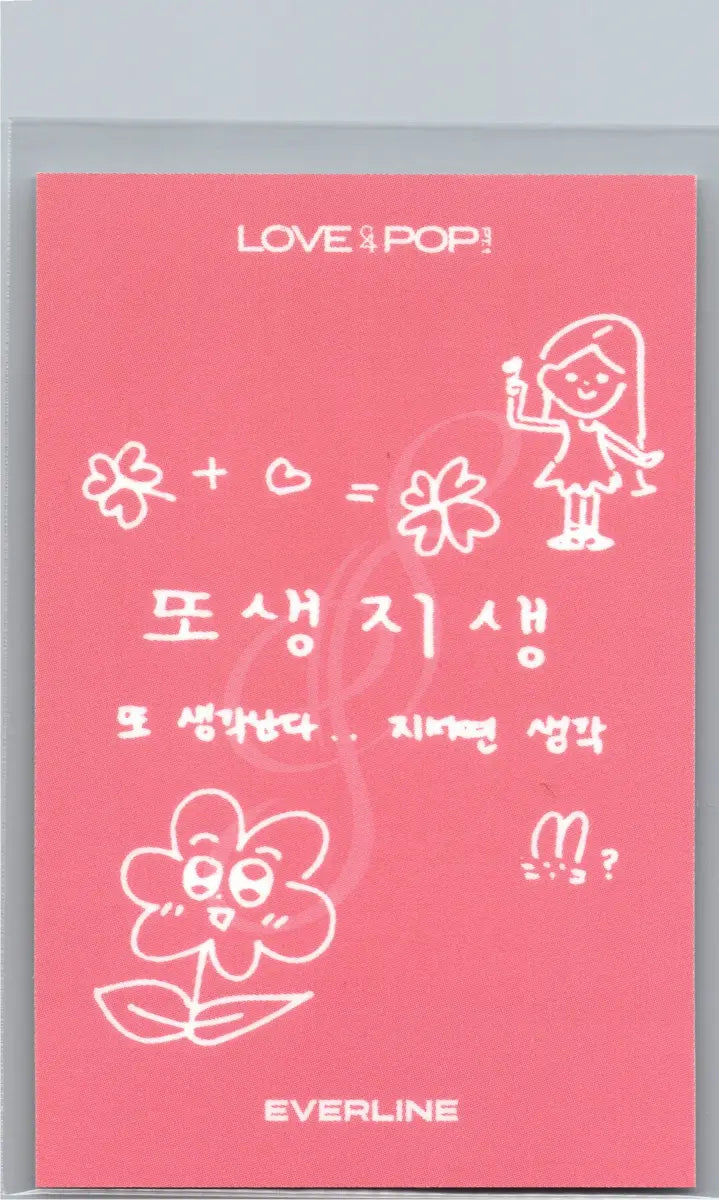 LOVE & POP!
+ ♡ =
또생지생
또 생각난다.. 지내면 생각
?
EVERLINE